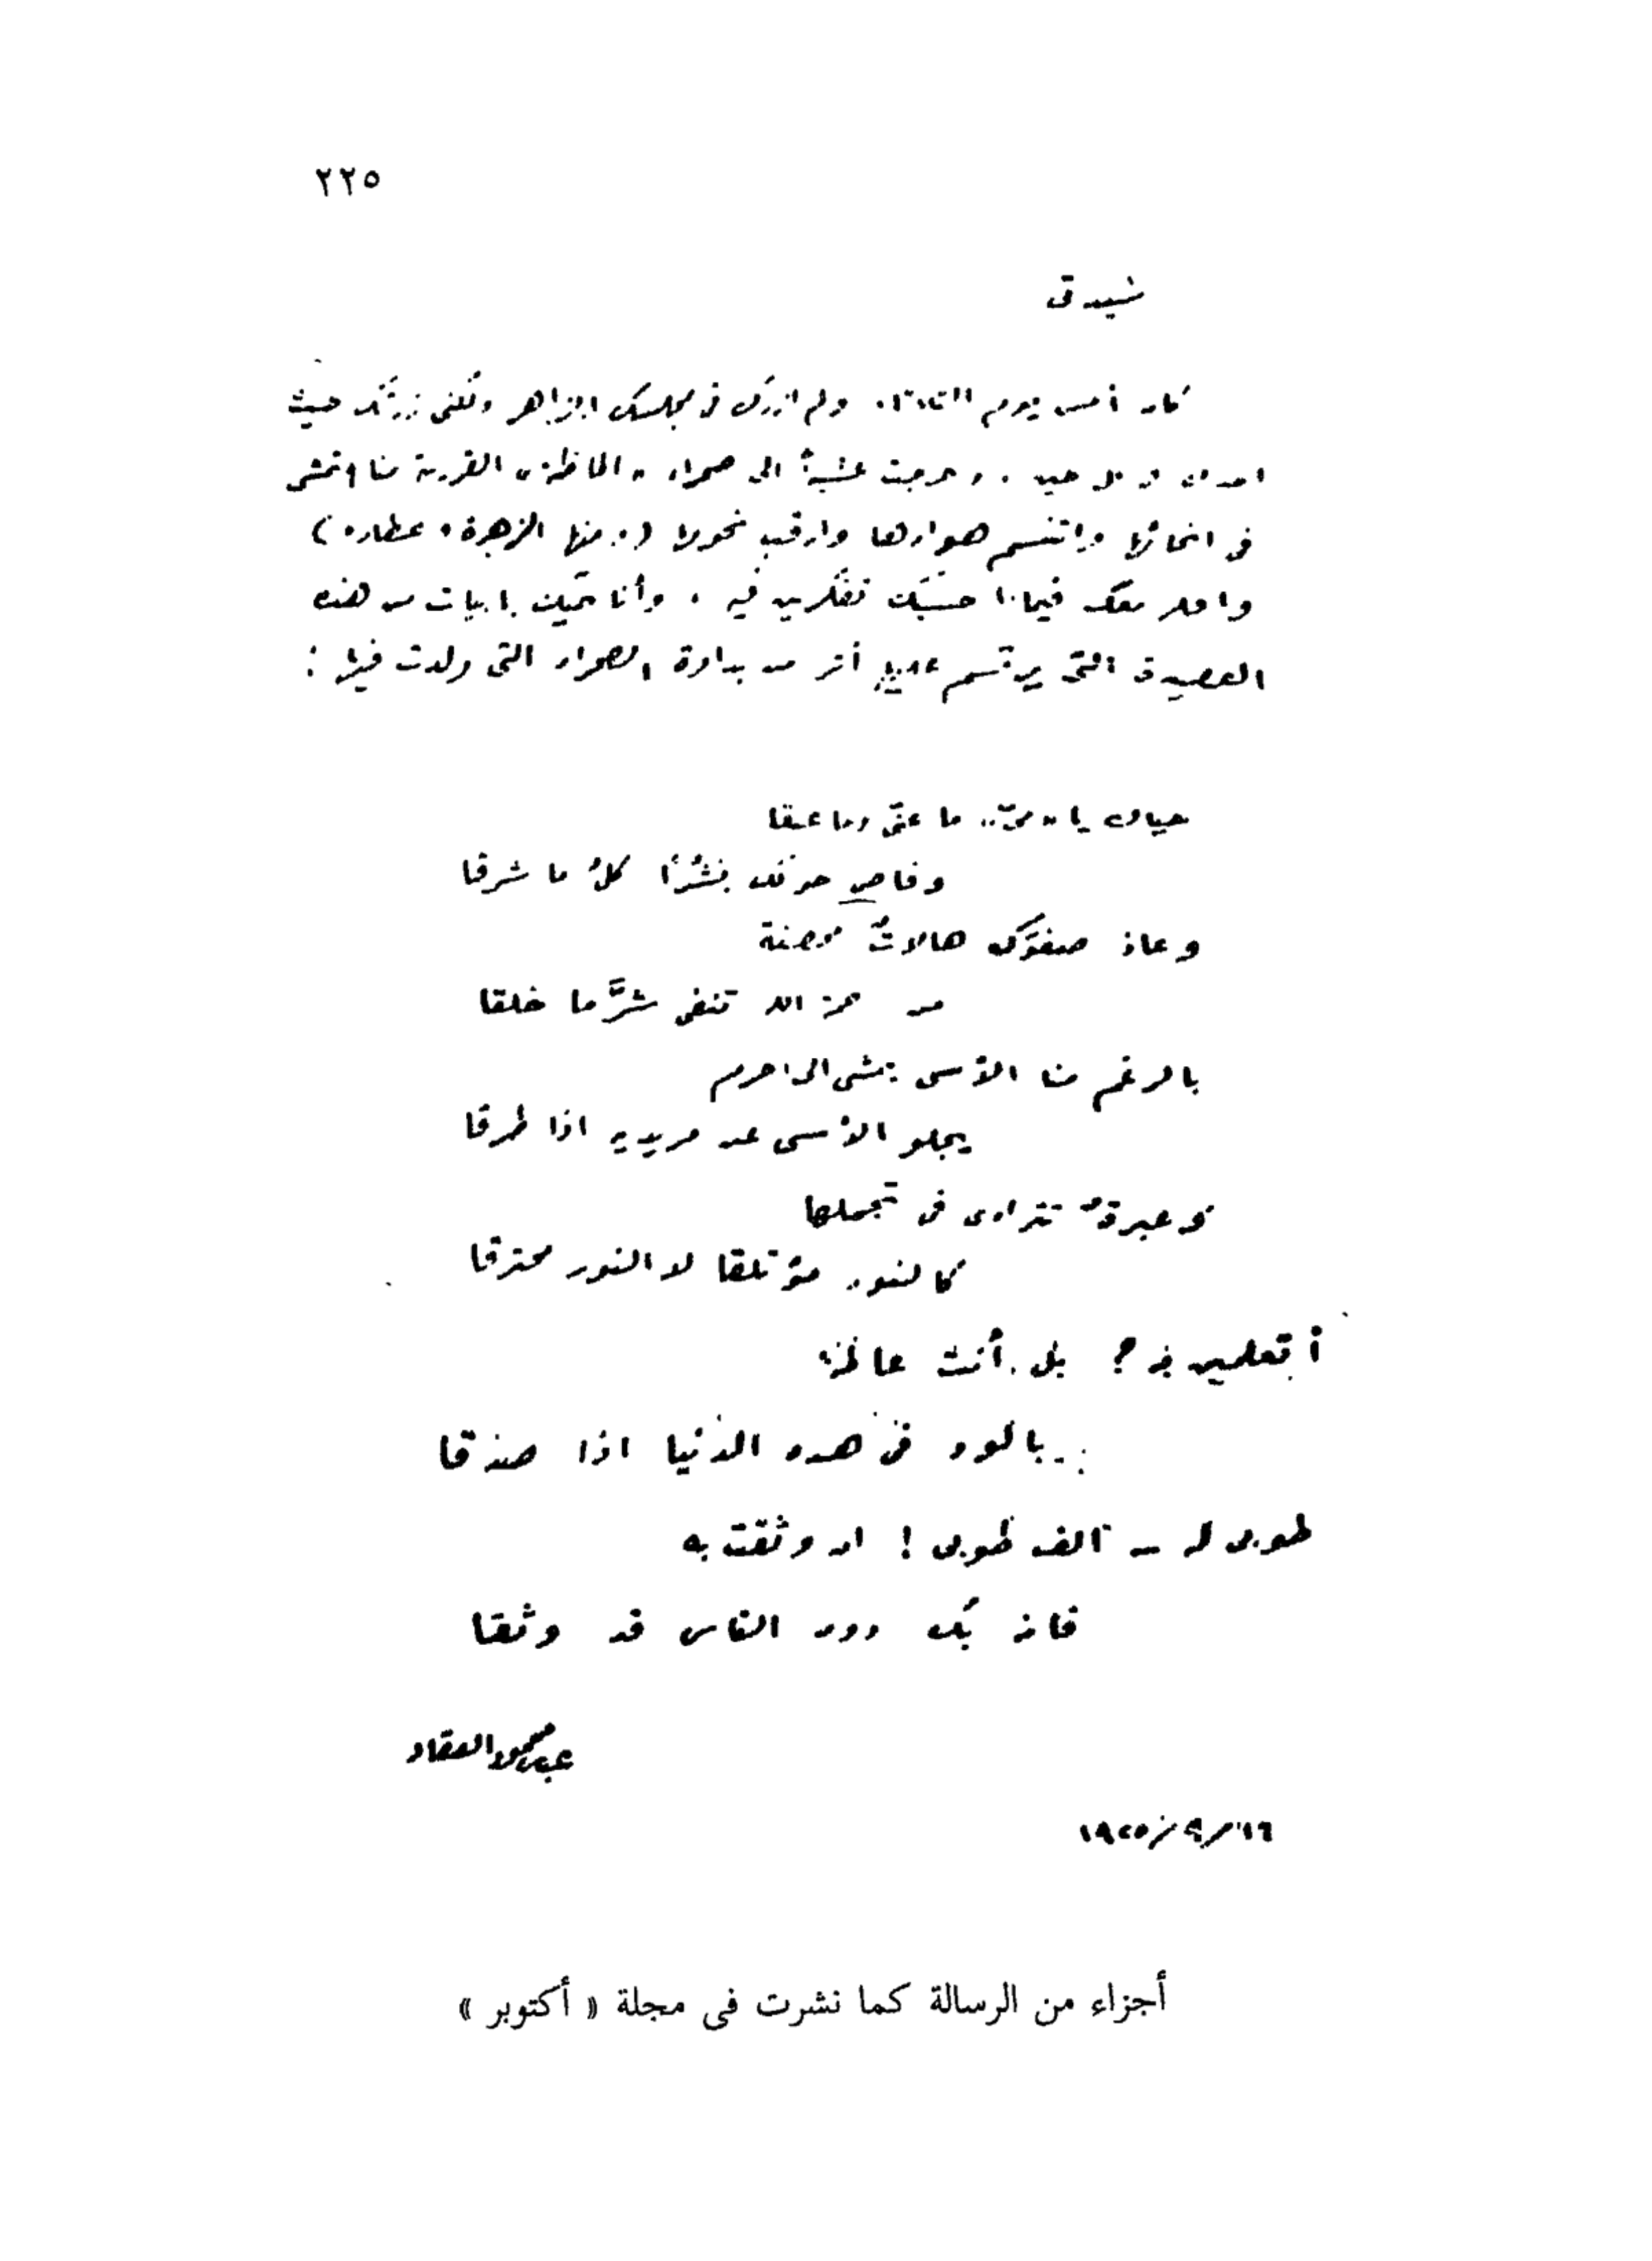 ٢٢٥
سيدتى
كان أمس يوم الثلاثاء ولم ازرك فى مجلسك الزاهر ولكنى زرتك حيث
خرجت عشية الى صحراء الماظة القريبة منا اتمشى
فى انحائها واتنسم هواءها وارقب نجومها ( ومنها الزهرة وعطارد )
معك فيما حسبتك تفكرين فيه ، وأنا بابيات من هذه
القصيدة التى يرتسم عليها أثر من بداوة الصحراء التى ولدت فيها :
حياك يا مى .. ما غنى وما عبقا
وفاض حولك بشرًا كلُّ ما شرقا
وعاذ صفوك هالاتٌ محصنة
من الله تنفى شرَّ ما خلقا
بالرغم منا الأسى يمشى الى حرم
يجلو الأسى عن مريديه اذا طرقا
وعبرةٌ تتراءى فى تجملها
كالنور مؤتلقا لا النور محترقا
أتعلمين به ؟ بل أنت عالمة
بالود فى هذه الدنيا اذا صدقا
طوبى له – ألف طوبى ! ان وثقت به
فانه بك دون الناس قد وثقا
عباس محمود العقاد
١٦/٩/١٩٢٥
أجزاء من الرسالة كما نشرت فى مجلة « أكتوبر »